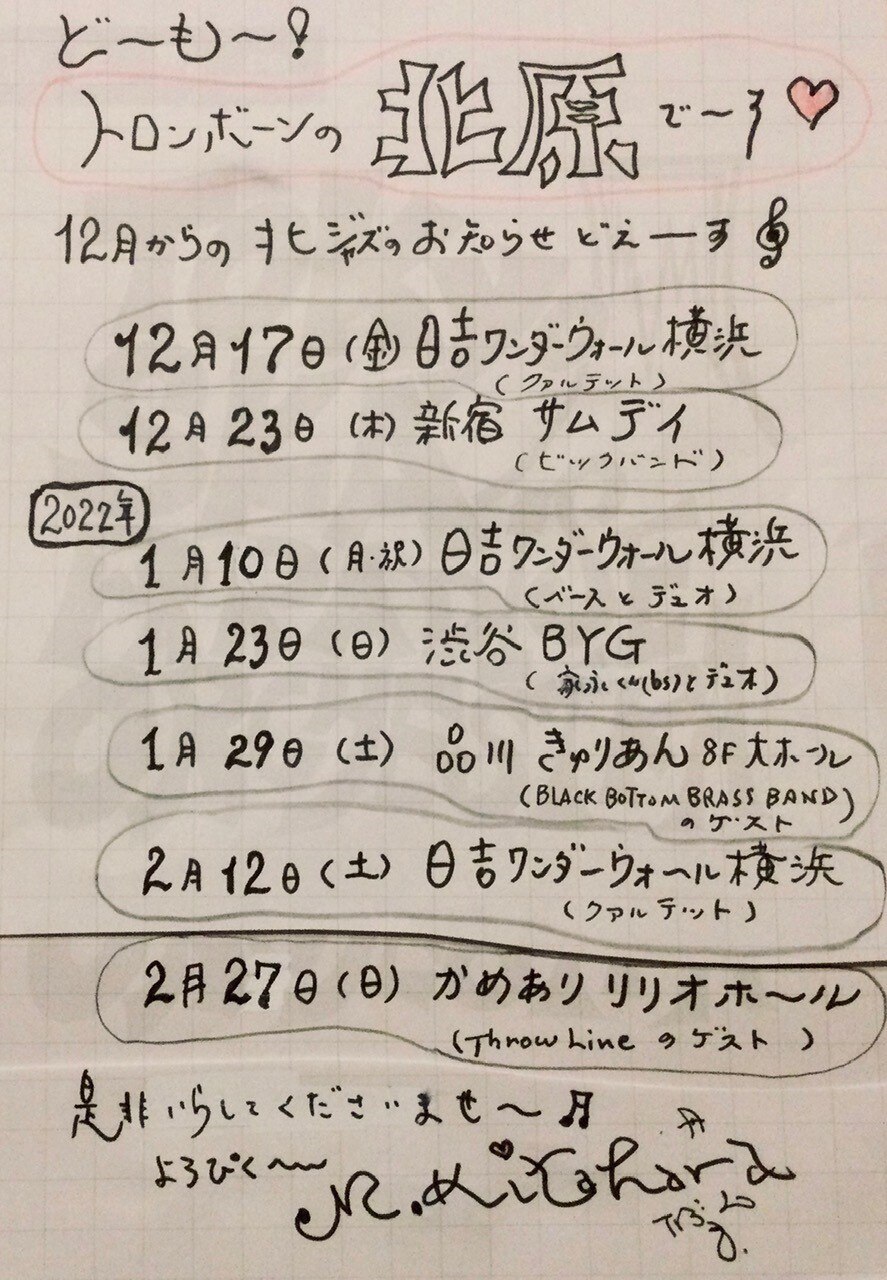 ど〜も〜!
トロンボーンの 北原 で〜す
12月からの 北ジャズの お知らせ どえーーす
12月17日(金) 日吉ワンダーウォール横浜
(クァルテット)
12月23日(木) 新宿 サムデイ
(ビックバンド)
2022年
1月10日(月・祝) 日吉ワンダーウォール横浜
(ベースとデュオ)
1月23日(日) 渋谷 BYG
(家永くん(bs)とデュオ)
1月29日(土) 品川 きゅりあん 8F大ホール
(BLACK BOTTOM BRASS BAND)
のゲスト
2月12日(土) 日吉ワンダーウォール横浜
(クァルテット)
2月27日(日) かめあり リリオホール
(Throw Line のゲスト)
是非いらしてくださいませ〜♬
よろぴく〜〜
M.Kitahara